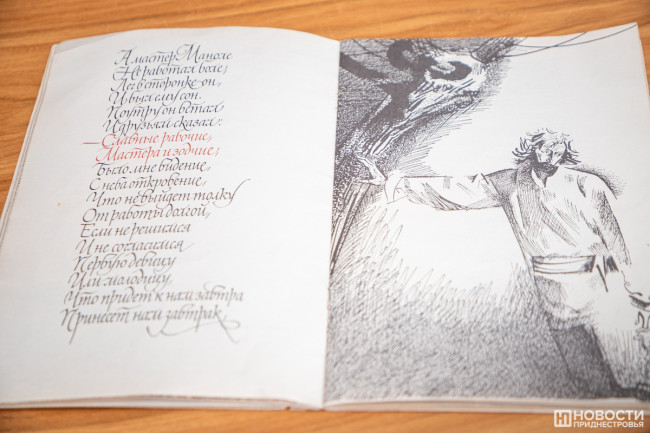 А мастер Маноле
Не работал боле,
Лег в сторонке он,
И был ему сон.
Поутру он встал
И друзьям сказал:
— Славные рабочие,
Мастера и зодчие,
Было мне видение,
С неба откровение,
Что не выйдет толку
От работы долгой,
Если не решимся
И не согласимся
Первую девицу
Или молодицу,
Что придет к нам завтра
Принесет нам завтрак,
НОВОСТИ
ПРИДНЕСТРОВЬЯ